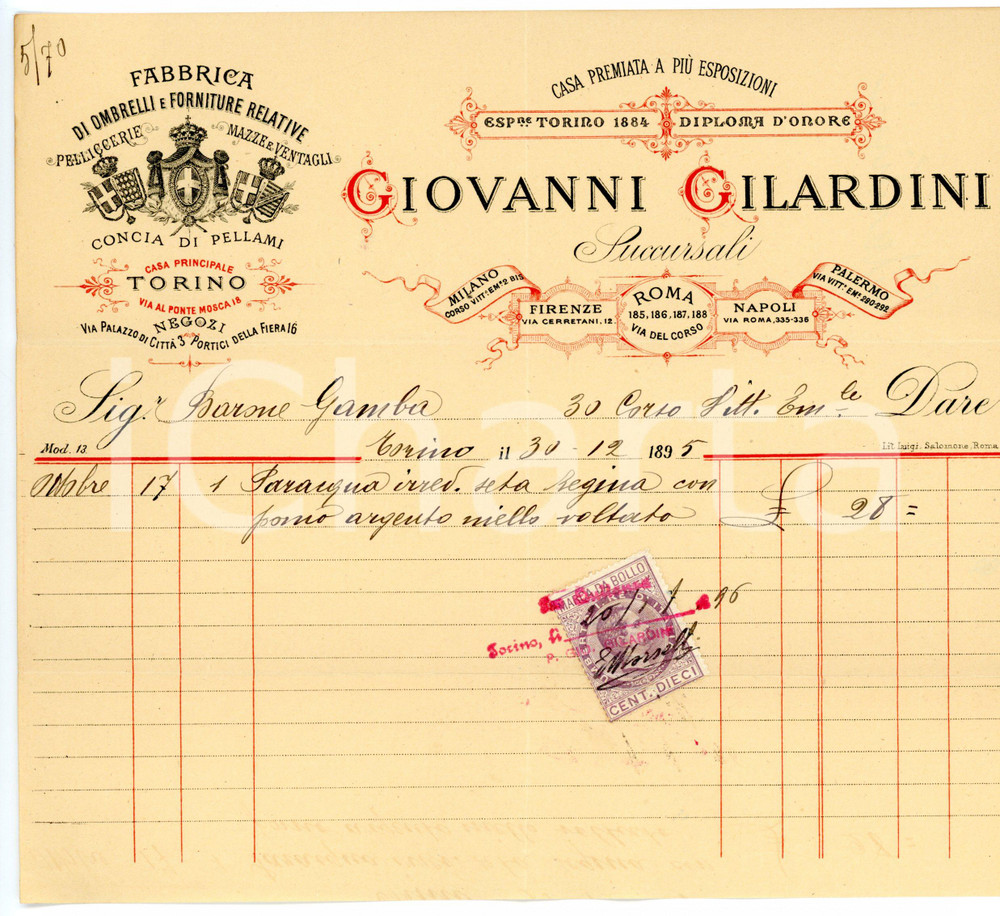 5/70
FABBRICA
DI OMBRELLI E FORNITURE RELATIVE
PELLICCERIE MAZZE E VENTAGLI
CONCIA DI PELLAMI
CASA PRINCIPALE
TORINO
VIA AL PONTE MOSCA 18
NEGOZI
VIA PALAZZO DI CITTÀ 3 PORTICI DELLA FIERA 16
CASA PREMIATA A PIÙ ESPOSIZIONI
ESPNE TORINO 1884 DIPLOMA D'ONORE
GIOVANNI GILARDINI
Succursali
MILANO
CORSO VITT. EM. 2 BIS
FIRENZE
VIA CERRETANI, 12.
ROMA
185, 186, 187, 188
VIA DEL CORSO
NAPOLI
VIA ROMA, 335-336
PALERMO
VIA VITT. EM. 290-292
Sig.r Barone Gamba 30 Corso Vitt. Em.le Dare
Mod. 13 Torino il 30-12 1895 Lit. Luigi Salomone, Roma
Ottobre 17 1 Paracqua irred. seta Regina con
pomo argento niello voltato £ 28 =
MARCA DA BOLLO
20/7 96
Torino, li
P. GIO. GILARDINI
CENT. DIECI
iCharta